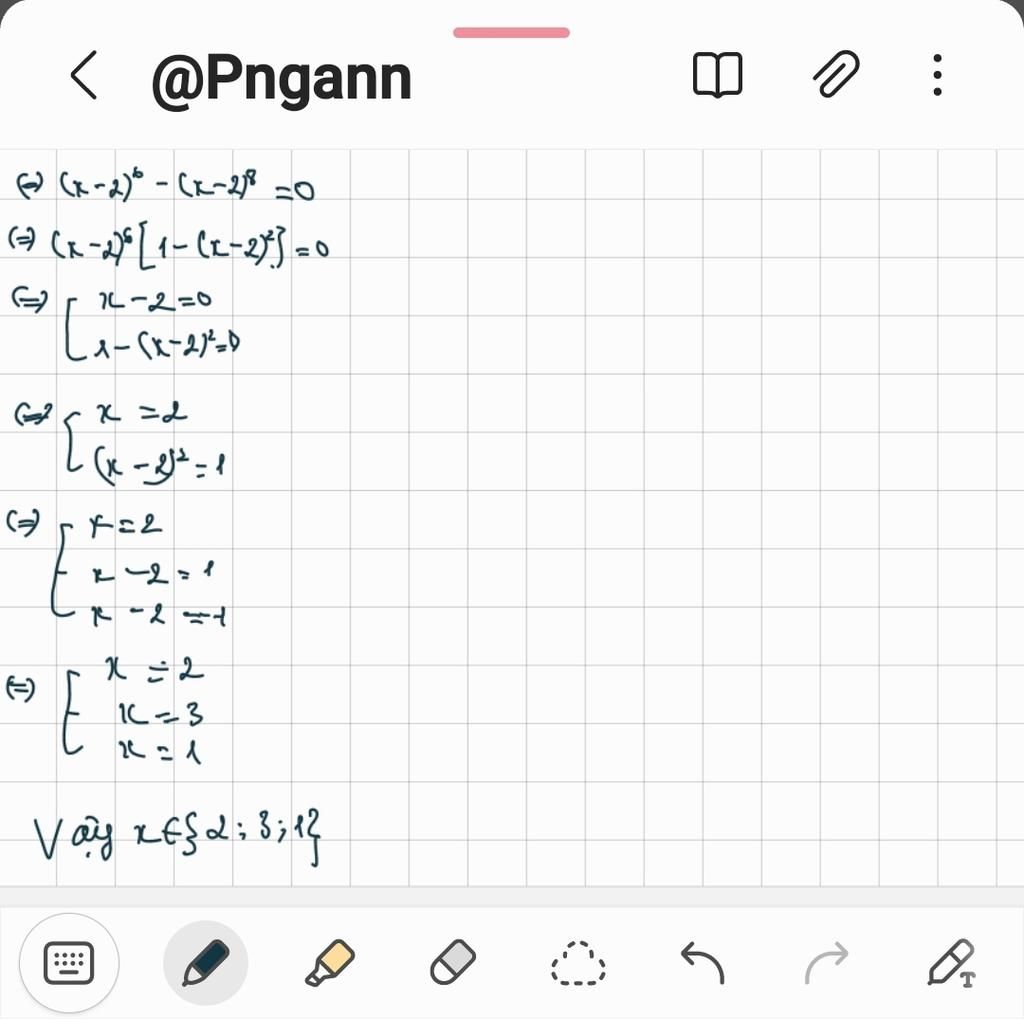 @Pngann
(=) (x-2)⁶ - (x-2)⁸ =0
(=) (x-2)⁶[1-(x-2)²]=0
(=) [ x-2=0
1-(x-2)²=0
(=) [ x =2
(x-2)²=1
(=) [ x=2
x-2=1
x-2=-1
(=) [ x=2
x=3
x=1
Vậy x∈{2;3;1}
T